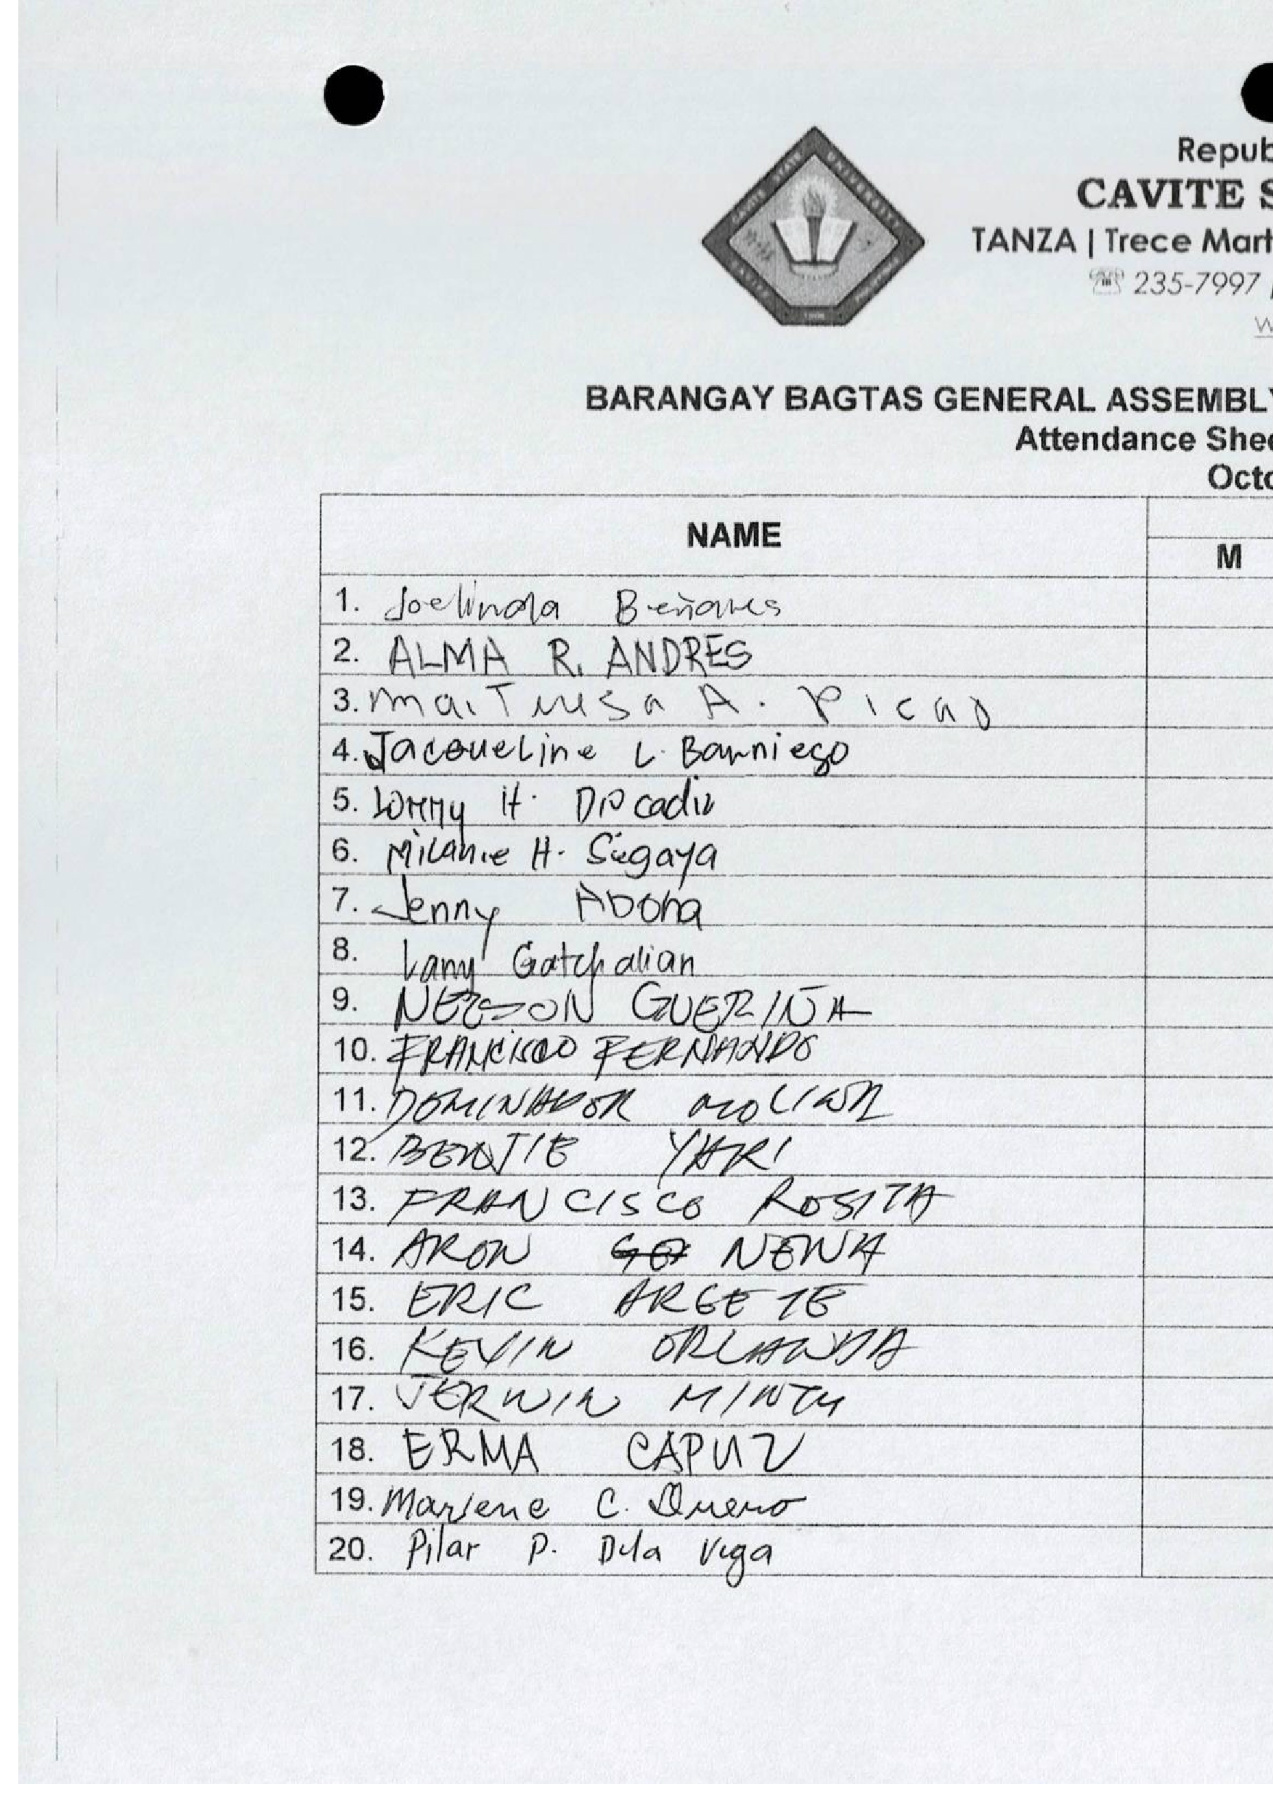 Repub
CAVITE S
TANZA | Trece Mart
☏ 235-7997 /
w
BARANGAY BAGTAS GENERAL ASSEMBLY
Attendance Shee
Octo
NAME
M
1. Joelinda Beñares
2. ALMA R. ANDRES
3. Ma. Teresa A. Picao
4. Jacqueline L. Barniego
5. H.
6. Milanie H. Sugaya
7. Jenny Abona
8. Lany Gatchalian
9. NELSON GUERIÑA
10. FRANCISCO FERNANDO
11. DOMINADOR
12. YARI
13. FRANCISCO ROSITA
14. ARON NENA
15. ERIC ARGETE
16. KEVIN ORLANDA
17. JERWIN
18. ERMA CAPUZ
19. Marlene C.
20. Pilar P. Dela Vega